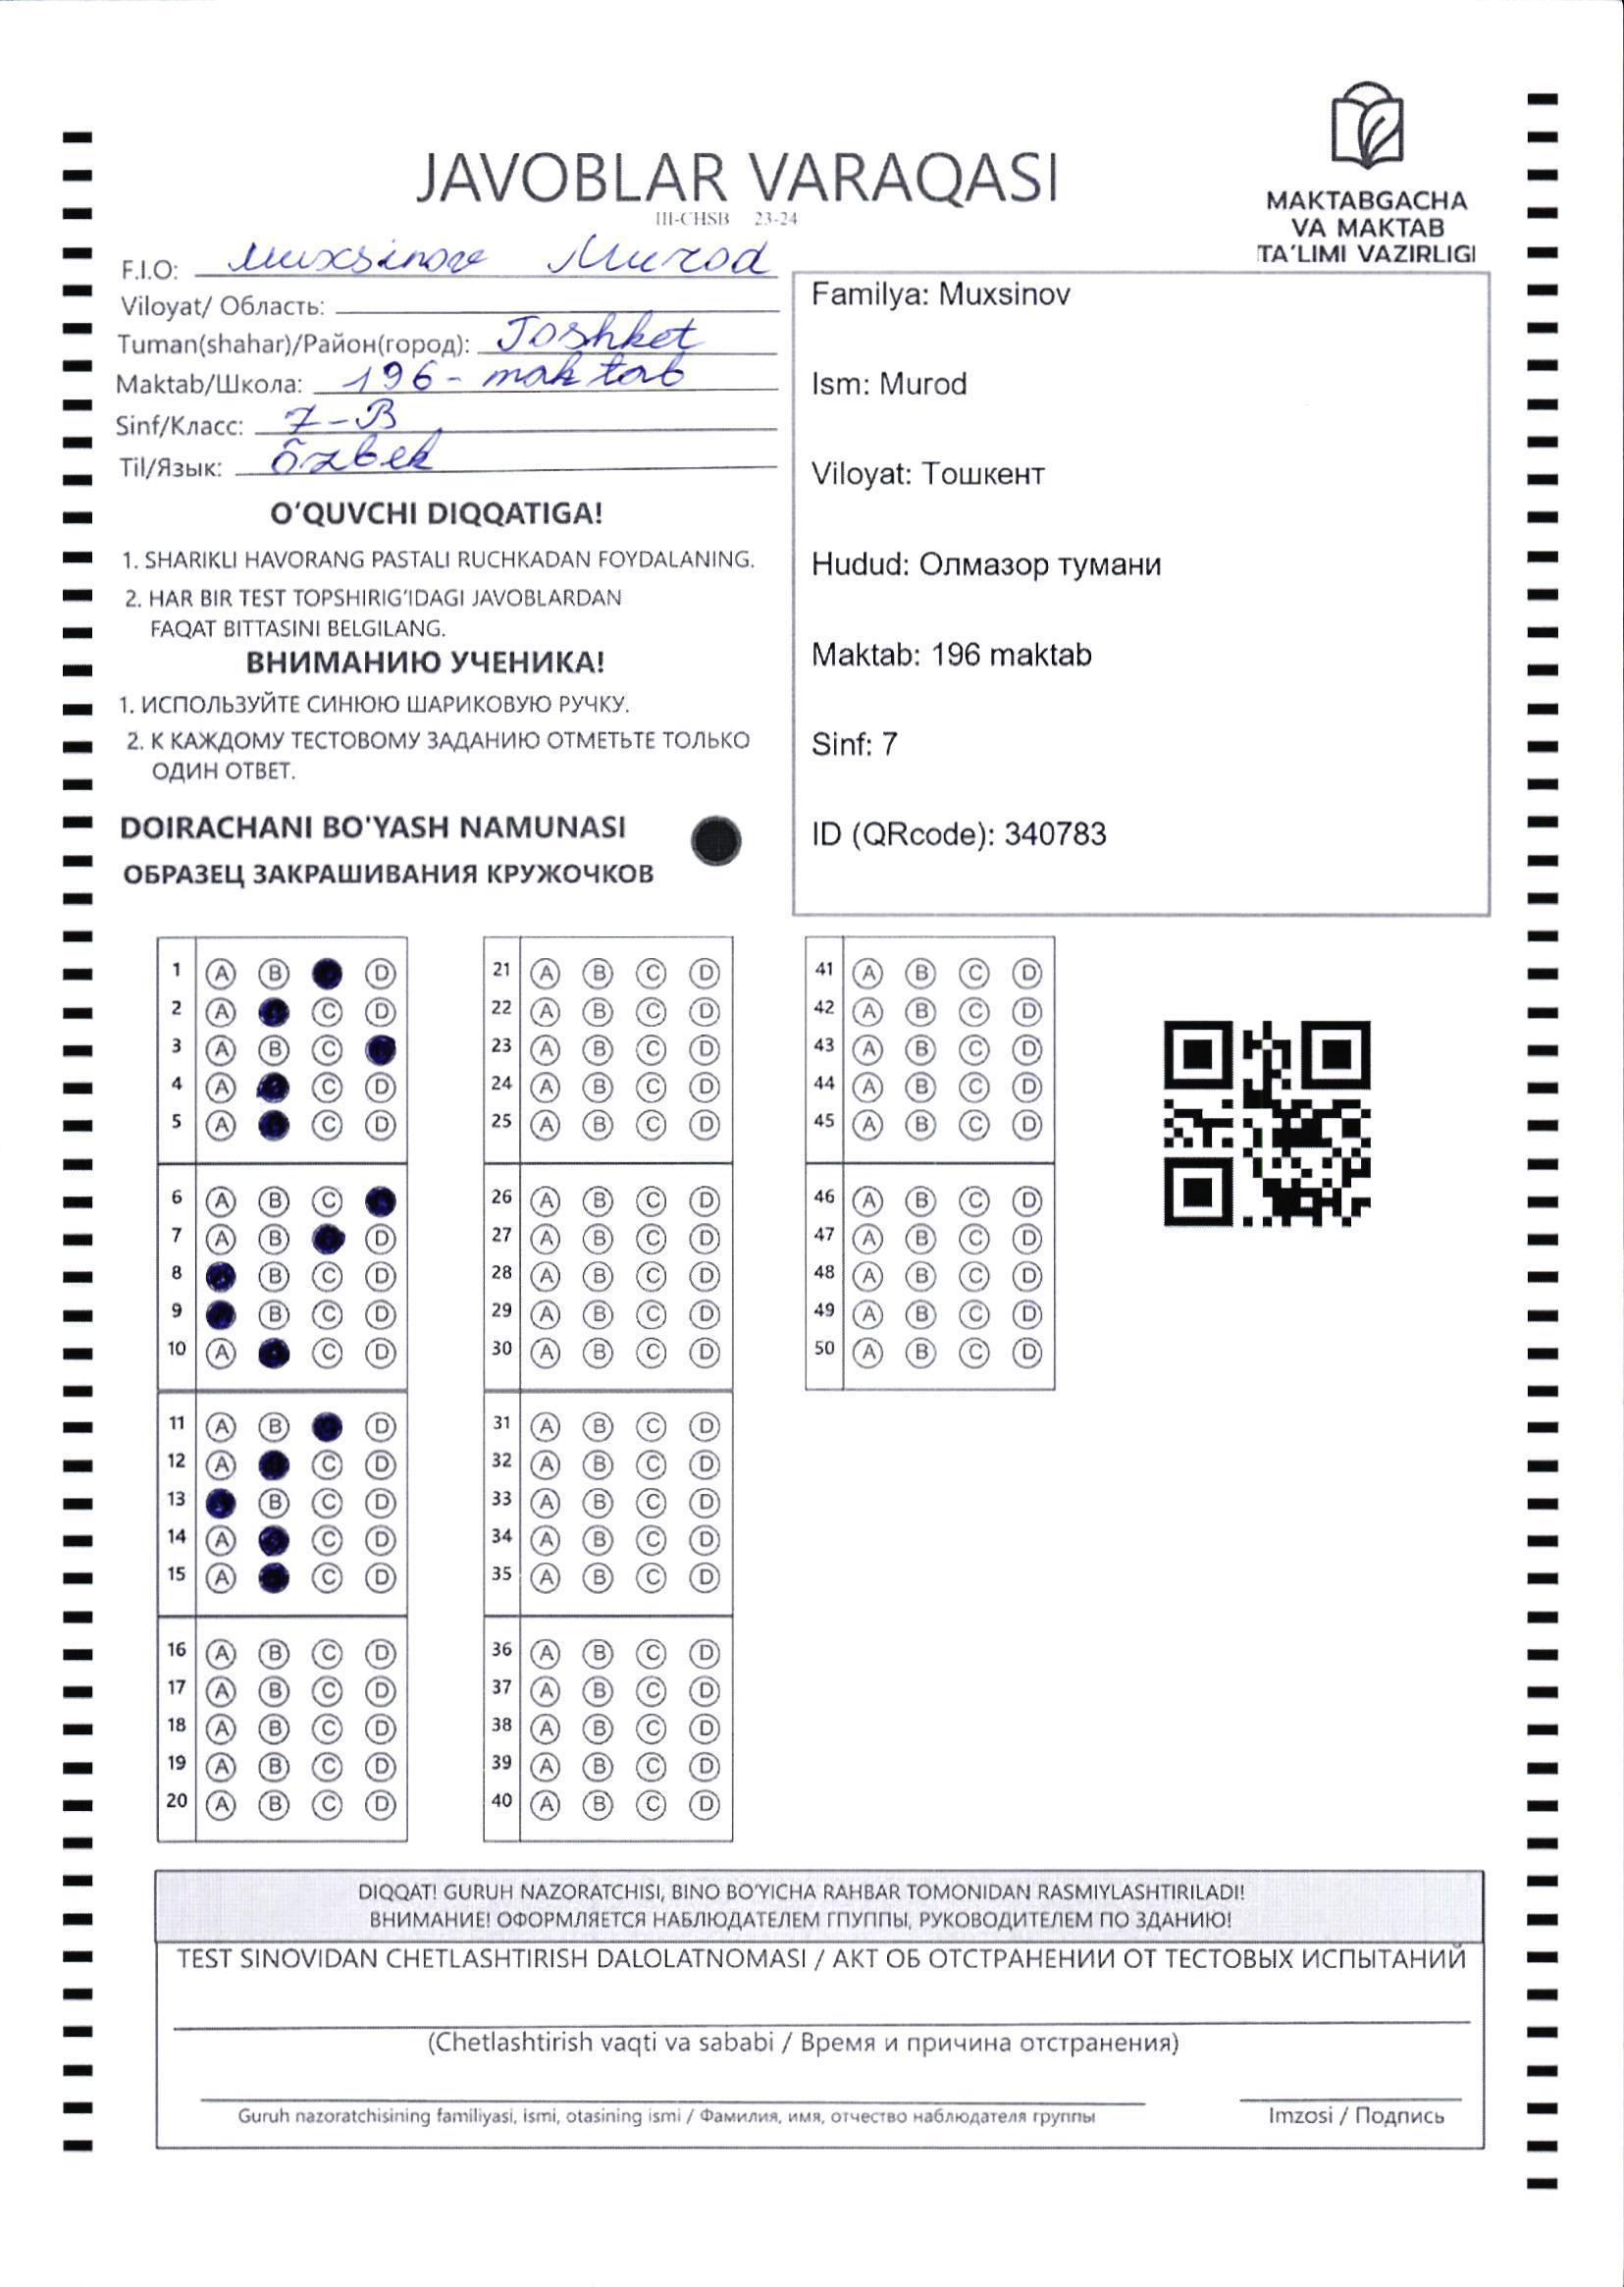 JAVOBLAR VARAQASI
III-CHSB 23-24
MAKTABGACHA
VA MAKTAB
TA'LIMI VAZIRLIGI
F.I.O: Muxsinov Murod
Viloyat/ Область:
Tuman(shahar)/Район(город): Toshket
Maktab/Школа: 196- maktab
Sinf/Класс: 7-B
Til/Язык: õzbek
O'QUVCHI DIQQATIGA!
1. SHARIKLI HAVORANG PASTALI RUCHKADAN FOYDALANING.
2. HAR BIR TEST TOPSHIRIG'IDAGI JAVOBLARDAN
FAQAT BITTASINI BELGILANG.
ВНИМАНИЮ УЧЕНИКА!
1. ИСПОЛЬЗУЙТЕ СИНЮЮ ШАРИКОВУЮ РУЧКУ.
2. К КАЖДОМУ ТЕСТОВОМУ ЗАДАНИЮ ОТМЕТЬТЕ ТОЛЬКО
ОДИН ОТВЕТ.
DOIRACHANI BO'YASH NAMUNASI
ОБРАЗЕЦ ЗАКРАШИВАНИЯ КРУЖОЧКОВ
Familya: Muxsinov
Ism: Murod
Viloyat: Тошкент
Hudud: Олмазор тумани
Maktab: 196 maktab
Sinf: 7
ID (QRcode): 340783
1 A B D
2 A C D
3 A B C
4 A C D
5 A C D
6 A B C
7 A B D
8 B C D
9 B C D
10 A C D
11 A B D
12 A C D
13 B C D
14 A C D
15 A C D
16 A B C D
17 A B C D
18 A B C D
19 A B C D
20 A B C D
21 A B C D
22 A B C D
23 A B C D
24 A B C D
25 A B C D
26 A B C D
27 A B C D
28 A B C D
29 A B C D
30 A B C D
31 A B C D
32 A B C D
33 A B C D
34 A B C D
35 A B C D
36 A B C D
37 A B C D
38 A B C D
39 A B C D
40 A B C D
41 A B C D
42 A B C D
43 A B C D
44 A B C D
45 A B C D
46 A B C D
47 A B C D
48 A B C D
49 A B C D
50 A B C D
DIQQAT! GURUH NAZORATCHISI, BINO BO'YICHA RAHBAR TOMONIDAN RASMIYLASHTIRILADI!
ВНИМАНИЕ! ОФОРМЛЯЕТСЯ НАБЛЮДАТЕЛЕМ ГПУППЫ, РУКОВОДИТЕЛЕМ ПО ЗДАНИЮ!
TEST SINOVIDAN CHETLASHTIRISH DALOLATNOMASI / АКТ ОБ ОТСТРАНЕНИИ ОТ ТЕСТОВЫХ ИСПЫТАНИЙ
(Chetlashtirish vaqti va sababi / Время и причина отстранения)
Guruh nazoratchisining familiyasi, ismi, otasining ismi / Фамилия, имя, отчество наблюдателя группы
Imzosi / Подпись